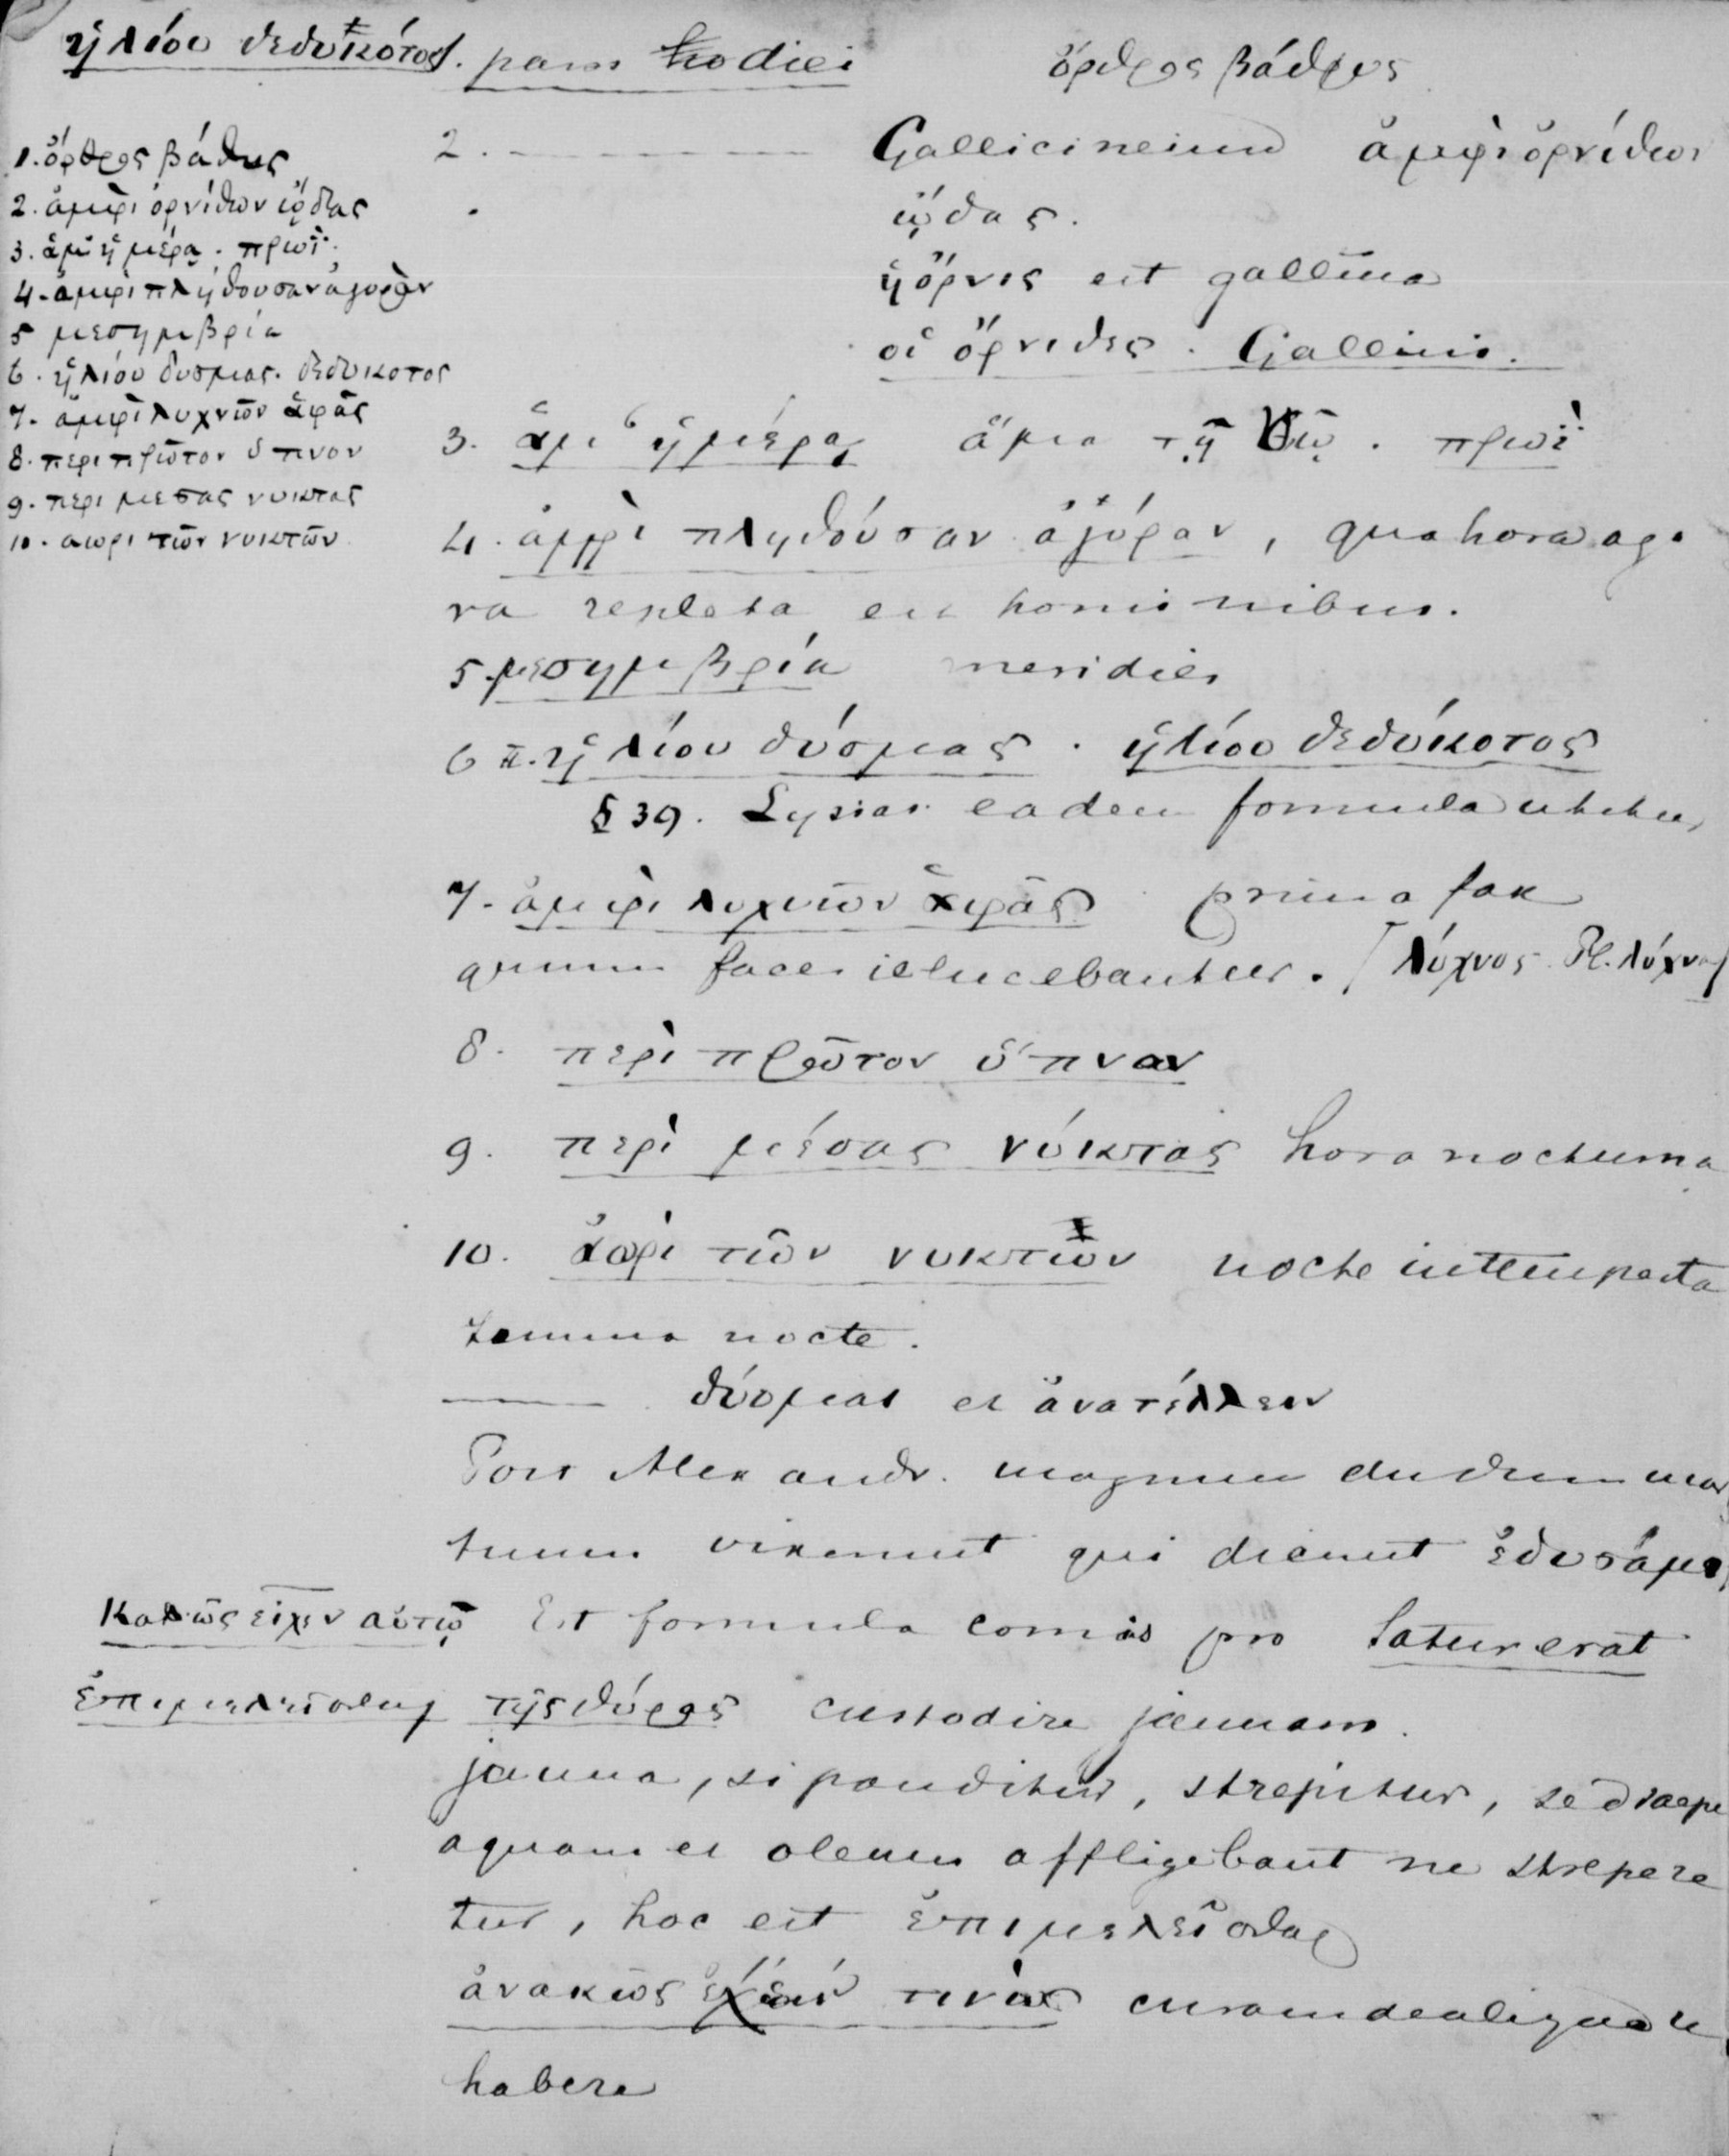 ἡλίου δεδυκότος. pars diei ὄρθρος βάθυς
1. ὄρθρος βάθυς
2. ἀμφὶ ὀρνίθων ᾠδας
3. ἁμ' ἡμέρᾳ. πρωΐ.
4. ἀμφὶ πλήθουσαν ἀγορὰν
5 μεσημβρία
6. ἡλίου δυσμας. δεδυκοτος
7. ἀμφὶ λυχνῶν ἁφὰς
8. περι πρῶτον ὑπνον
9. περι μεσας νυκτας
10. αωρι τῶν νυκτῶν
2. Gallicineium ἀμφὶ ὀρνίθων
ᾠδας.
ἡ ὄρνις est gallina
οἱ ὄρνιθες. Gallinis.
3. ἁμ' ἡμέρᾳ ἅμα τῇ πρωΐ
4. ἀμφὶ πληθούσαν ἀγόραν, qua hora ago
ra repleta est hominibus.
5. μεσημβρία meridies
6 π. ἡλίου δύσμας. ἡλίου δεδύκοτος
§ 39. Lysias eadem formula utitur
7. ἀμφὶ λυχνῶν ἁφὰς prima fax
quum faces elucebantur. [λύχνος Pl. λύχνα]
8. περὶ πρῶτον ὕπνον
9. περὶ μέσας νύκτας hora nocturna
10. ἀωρὶ τῶν νυκτῶν nocte intempesta
summa nocte.
δύσμαι et ἀνατέλλειν
Post Alexandr. magnum dudum mor
tuum vixerunt qui dicunt ἐδυσάμην
καλῶς εἶχεν αὐτῷ Est formula comis pro Satur erat
ἐπιμελεῖσθαι τῆς θύρας custodire januam.
janua, si panditur, strepitur, sed saepe
aquam et oleum affligebant ne strepere
tur, hoc est ἐπιμελεῖσθαι
ἀνακῶς ἔχειν τινὸς curam de aliquo
habere